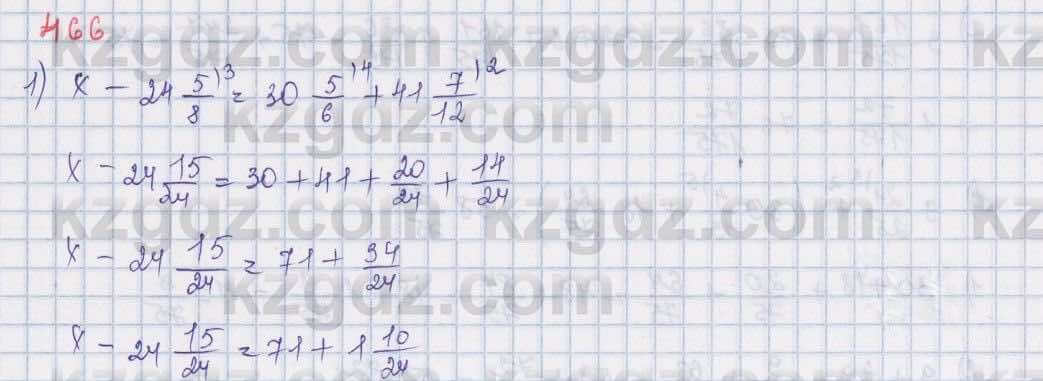 466
1) x - 24 5/8 )3 = 30 5/6 )4 + 41 7/12 )2
x - 24 15/24 = 30 + 41 + 20/24 + 14/24
x - 24 15/24 = 71 + 34/24
x - 24 15/24 = 71 + 1 10/24
kzgdz.com
kzgdz.com
kzgdz.com
kzgdz.com